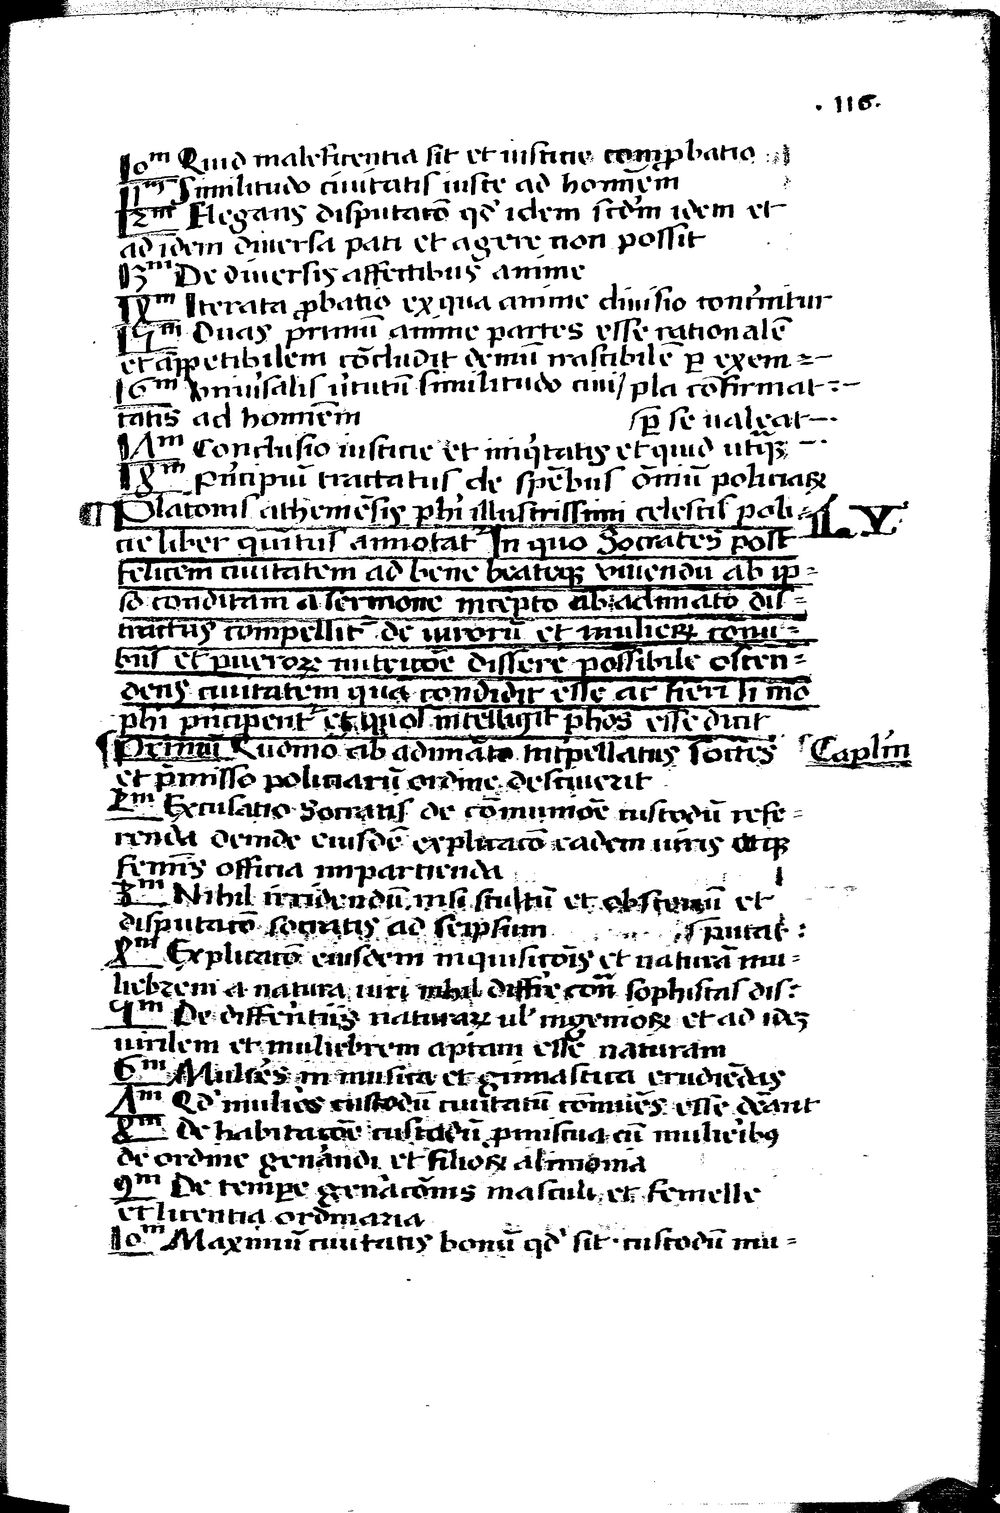 · 116 ·
10m Quid maleficentia sit et iusticie comprobatio
11m Similitudo ciuitatis iuste ad hominem
12m Elegans disputatō qđ idem scđm idem et
ad idem diuersa pati et agere non possit
13m De diuersis affectibus anime
14m Iterata probatio ex qua anime diuisio concinitur
15m Duas primū anime partes esse rationalē
et appetibilem cōcludit demū irascibilē p exem=
16m vniuersalis uirtutū similitudo ciui/pla cōfirmat
tatis ad hominem p se ualeat
17m Conclusio iusticie et iniqtatis et quid utq̄
18m principiū tractatus de spēbus ōniū policiaꝝ
Platonis atheniēsis phi illustrissimi celestis poli= L. V
cie liber quintus annotat In quo Socrates post
felicem ciuitatem ad bene beateqꝫ viuendū ab ip=
so conditam a sermone incepto ab adimato dis=
tractus compellit de uxorū et mulieꝝ cōni=
bus et pueroꝝ nutricōe dissere possibile osten=
dens ciuitatem quā condidit esse ac fieri si mō
phi principent et quos intelligit phōs esse dicit
Primū Quomō ab adimāto interpellatus socrates Caplm
et p̄misso policiarū ordine desciuerit
2m Excusatio Socratis de cōmunioē custodū refe=
renda deinde eiusdē explicatō eadem uiris atqꝫ
feminis officia impartienda
3m Nihil irridendū nisi stultū et obscenū et
disputatō socratis ad seipsum putat:
4m Explicatō eiusdem inquisitōis et naturā mu=
liebrem a natura uiri nihil differre cont̄ sophistas dis:
5m De differentiis naturaꝝ ul ingenioꝝ et ad idē
uirilem et muliebrem aptam esse naturam
6m Mulieres in musica et ginnastica erudiēdas
7m Qđ mulieres custodū ciuitatū cōmunes esse debeant
8m de habitacōe custodū promiscua cū mulieribꝯ
de ordine generandi et filioꝝ alimonia
9m De tempore generacōnis masculi et femelle
et licentia ordinaria
10m Maximū ciuitatis bonū qđ sit custodū mu=